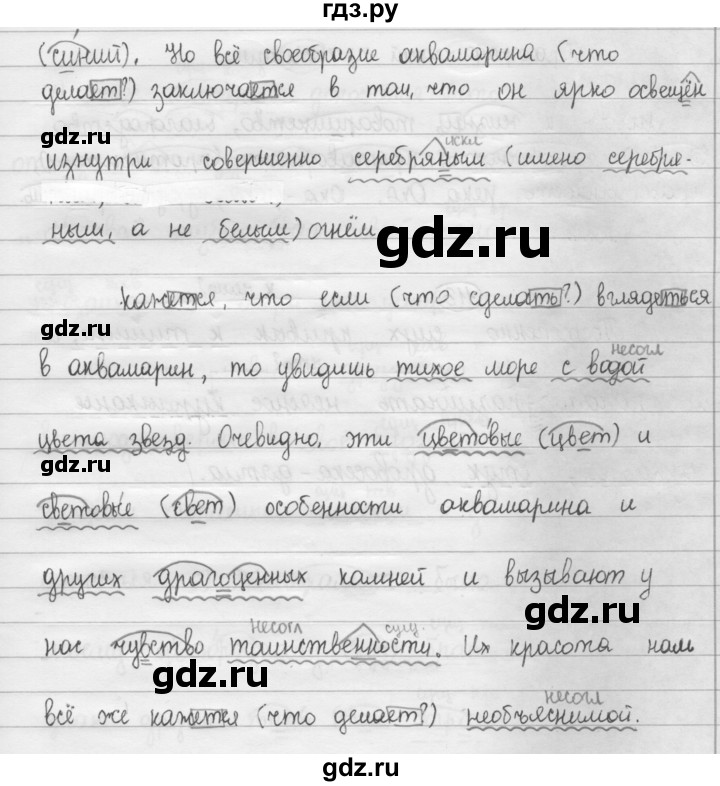 гдз.ру
(синий). Но всё своеобразие аквамарина (что
делает?) заключается в том, что он ярко освещён
gdz.ru
искл
изнутри совершенно серебряным (имено серебря-
ным, а не белым) огнём
gdz.ru
gdz.ru
Кажется, что если (что сделать?) вглядеться
gdz.ru
несогл
в аквамарин, то увидишь тихое море с водой
цвета звезд. Очевидно, эти цветовые (цвет) и
gdz.ru
световые (свет) особенности аквамарина и
других драгоценных камней и вызывают у
gdz.ru
gdz.ru
несогл сущ.
нас чувство таинственности. Их красота нам
gdz.ru
несогл
всё же кажется (что делает?) необъяснимой.
gdz.ru
gdz.ru